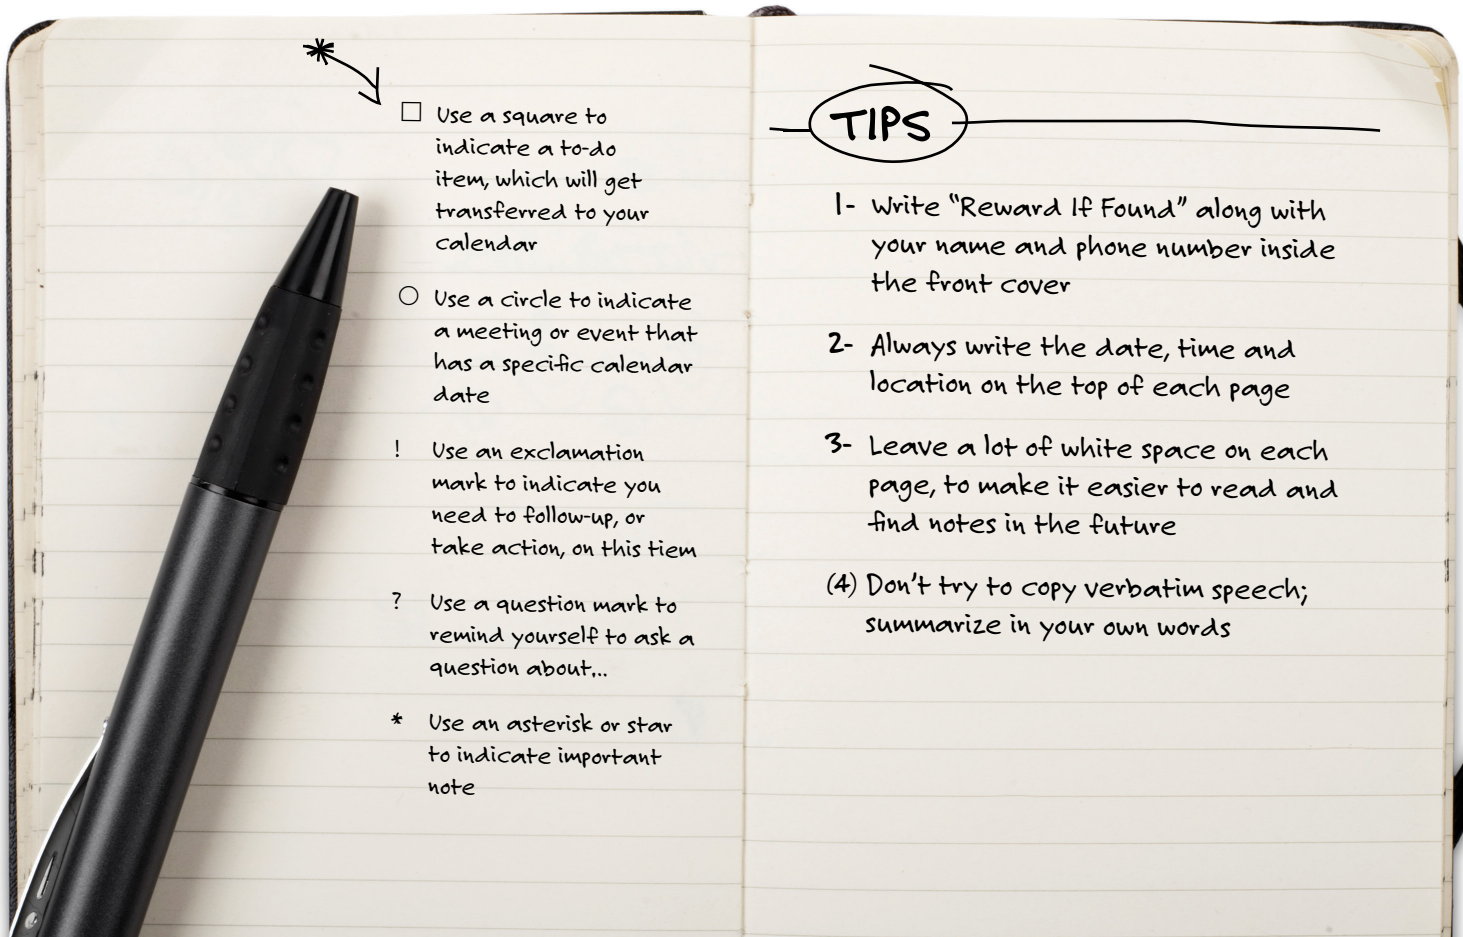 *
□ Use a square to
indicate a to-do
item, which will get
transferred to your
calendar
○ Use a circle to indicate
a meeting or event that
has a specific calendar
date
! Use an exclamation
mark to indicate you
need to follow-up, or
take action, on this tiem
? Use a question mark to
remind yourself to ask a
question about...
* Use an asterisk or star
to indicate important
note
TIPS
1- Write “Reward If Found” along with
your name and phone number inside
the front cover
2- Always write the date, time and
location on the top of each page
3- Leave a lot of white space on each
page, to make it easier to read and
find notes in the future
(4) Don't try to copy verbatim speech;
summarize in your own words